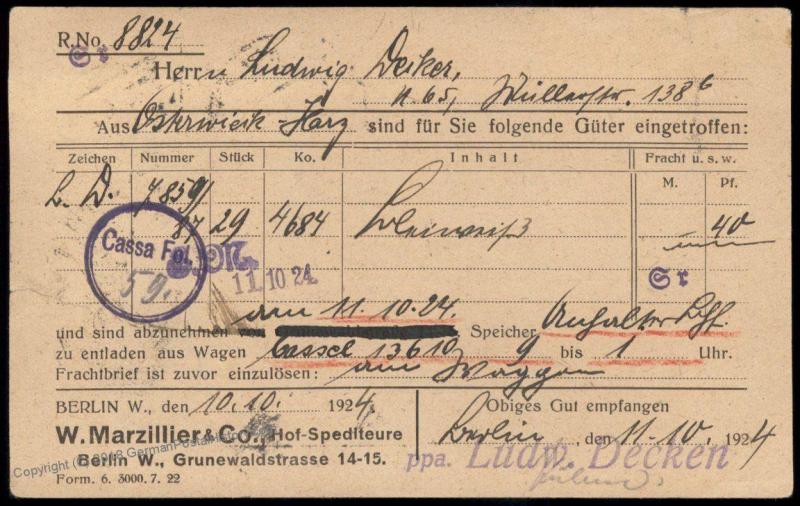 R.No. 8824
Sr
Herrn Ludwig Decker,
N. 65, Müllerstr. 138 b
Aus Osterwieck-Harz sind für Sie folgende Güter eingetroffen:
Zeichen Nummer Stück Ko. Inhalt Fracht u. s. w.
M. Pf.
L. D. 7859/
87 29 4684 Bleiweiß 40
Cassa Fol. 59.
11.10.24.
Sr
am 11.10.24.
und sind abzunehmen von Speicher Anhalter Bhf.
zu entladen aus Wagen Cassel 13610 9 bis 1 Uhr.
Frachtbrief ist zuvor einzulösen: am Waggon
BERLIN W., den 10.10. 1924. Obiges Gut empfangen
W. Marzillier & Co., Hof-Spediteure Berlin, den 11.10. 1924
Berlin W., Grunewaldstrasse 14-15. ppa. Ludw. Decken
Form. 6. 3000. 7. 22